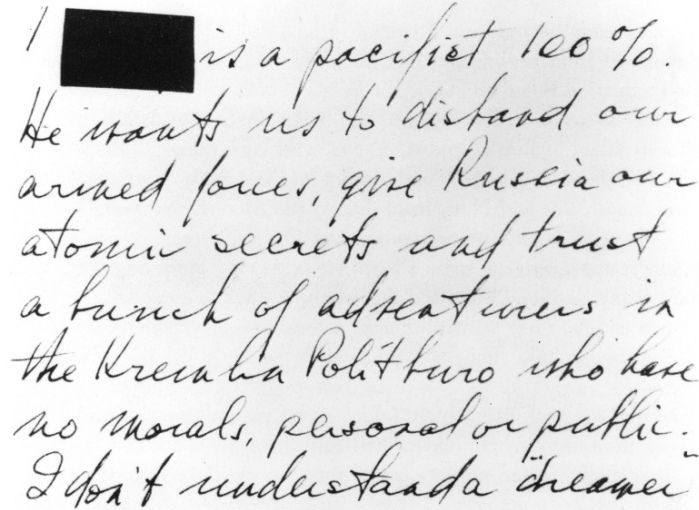 is a pacifist 100 %.
He wants us to disband our
armed forces, give Russia our
atomic secrets and trust
a bunch of adventurers in
the Kremlin Politburo who have
no morals, personal or public.
I don't understand a "dreamer"